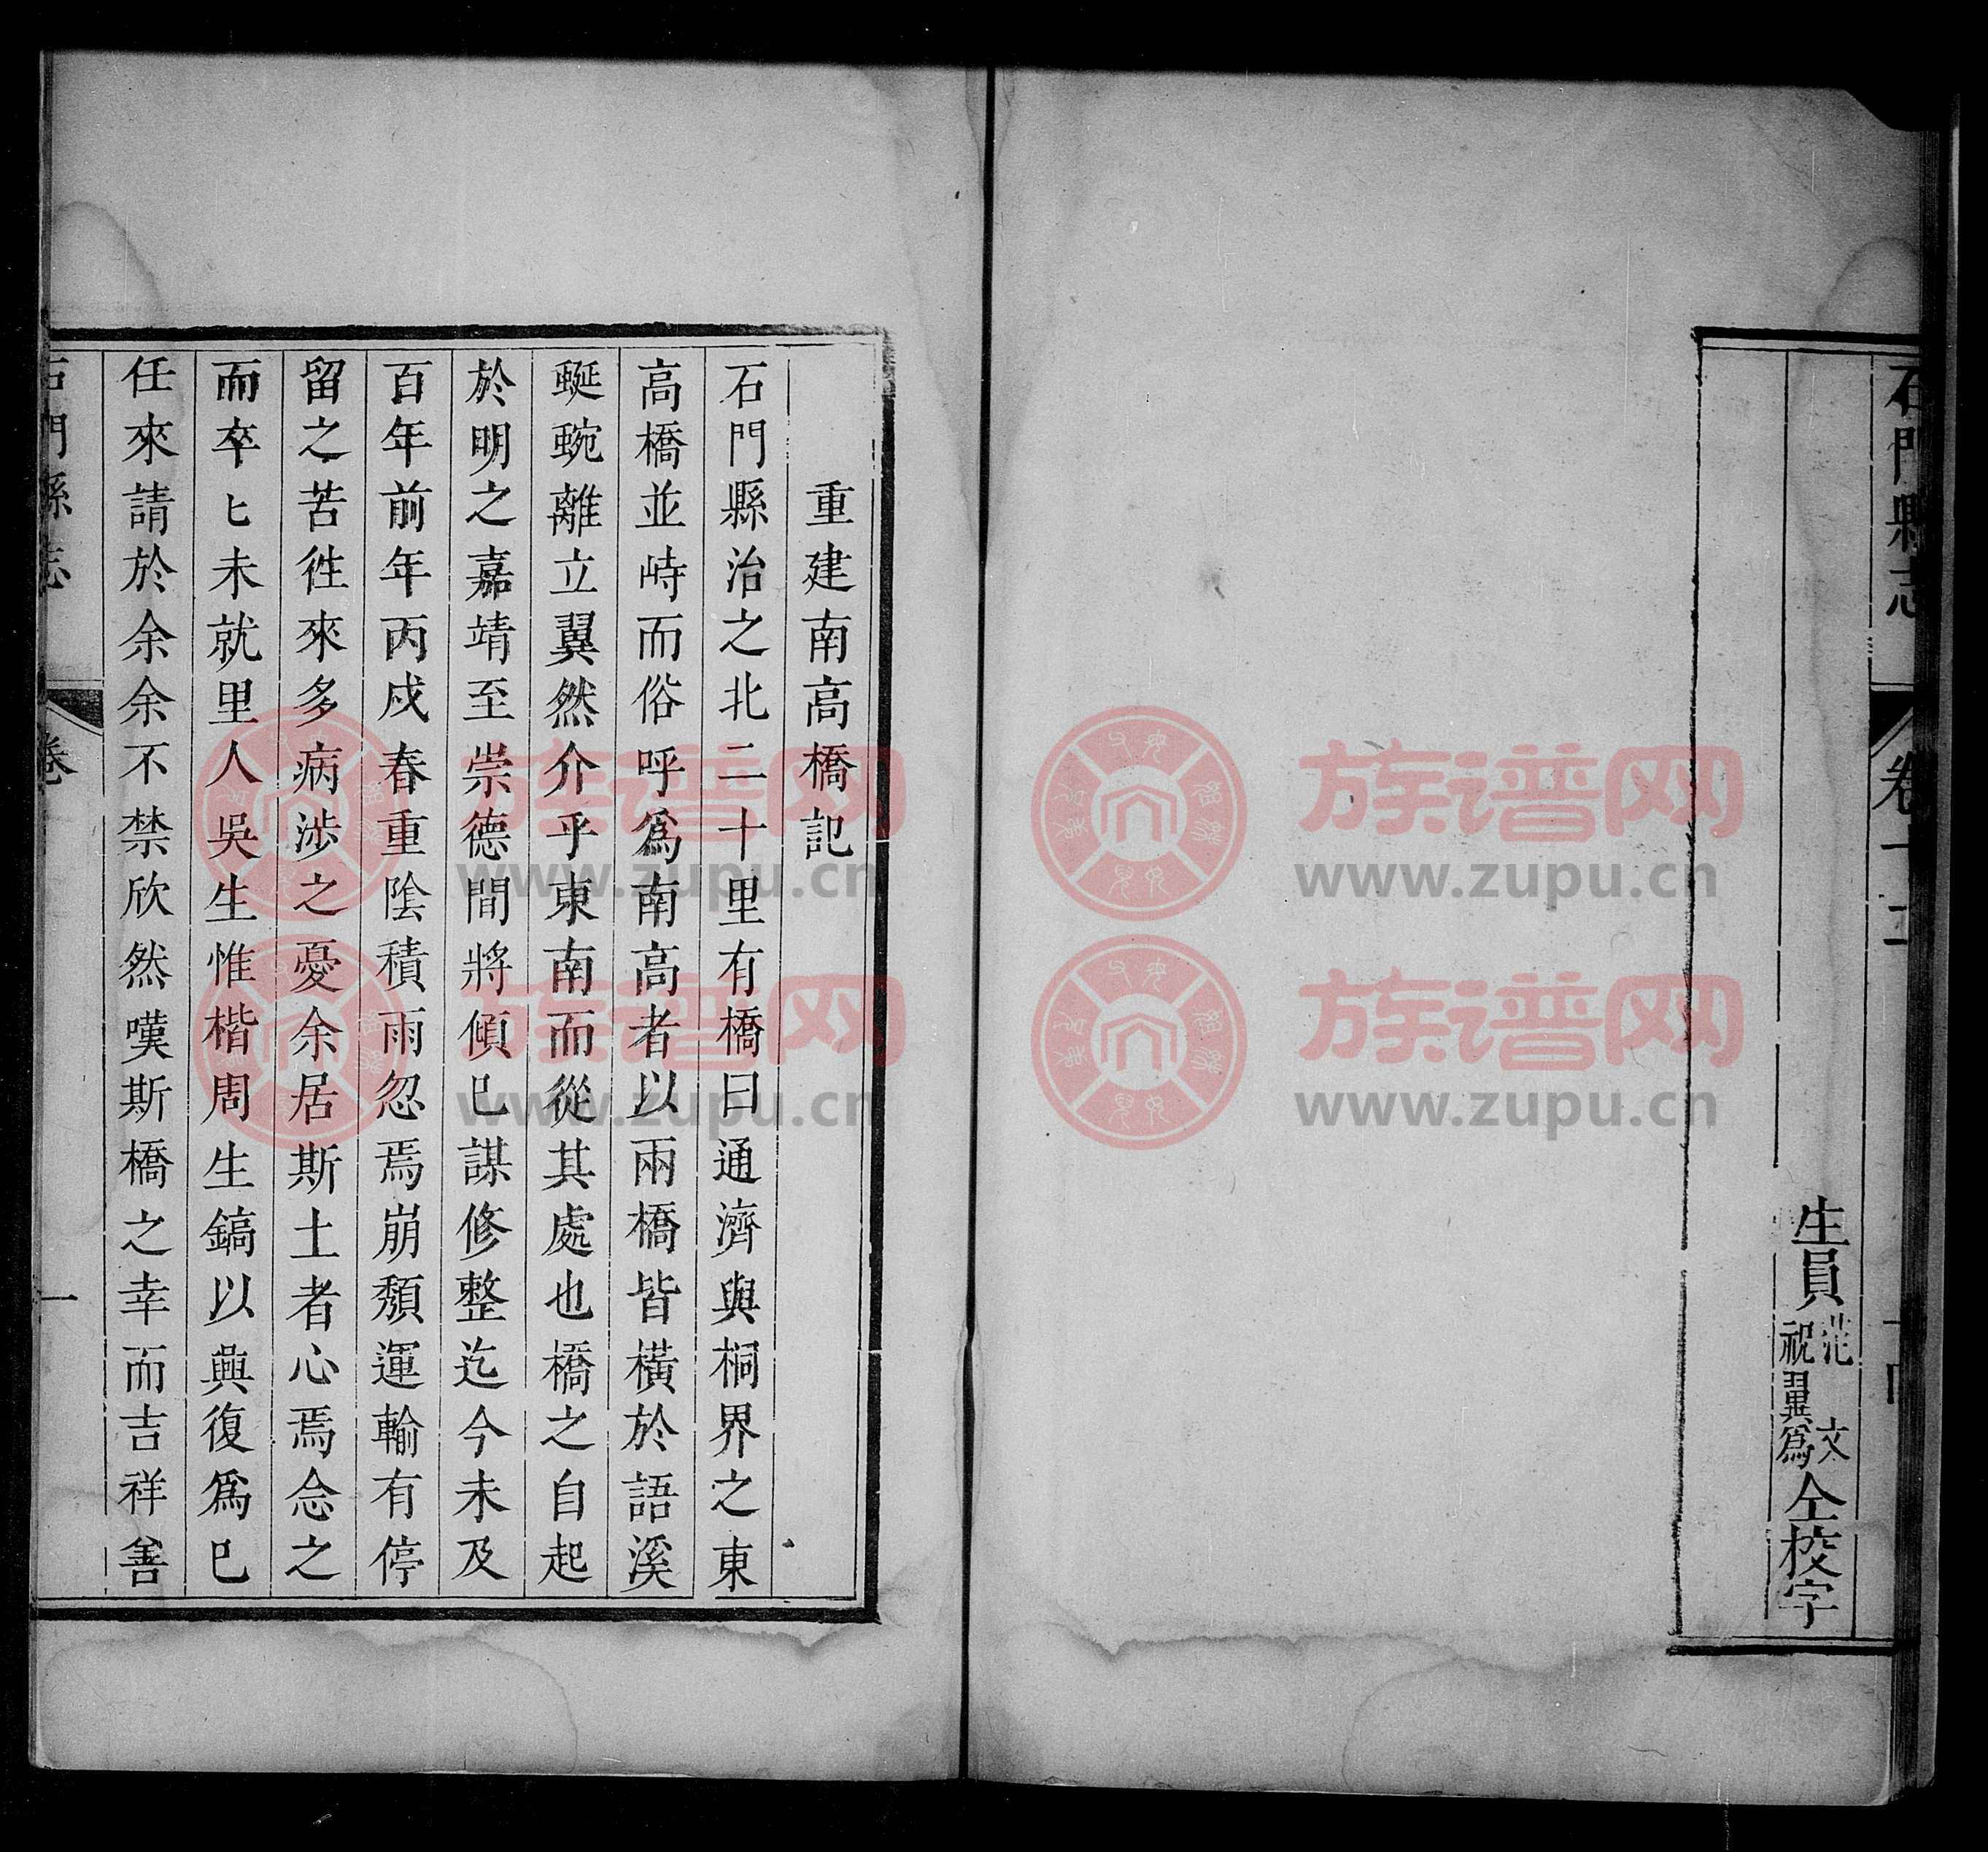 石門縣志
卷十二
十四
生員
范文
祝翼爲
仝校字
重建南高橋記
石門縣治之北二十里有橋曰通濟與桐界之東
高橋並峙而俗呼爲南高者以兩橋皆橫於語溪
蜒蜿離立翼然介乎東南而從其處也橋之自起
於明之嘉靖至崇德間將傾已謀修整迄今未及
百年前年丙戌春重陰積雨忽焉崩頽運輸有停
留之苦徃來多病涉之憂余居斯土者心焉念之
而卒匕未就里人吳生惟楷周生鎬以興復爲已
任來請於余余不禁欣然嘆斯橋之幸而吉祥善
石門縣志
卷
一
族谱网
www.zupu.cn
族谱网
www.zupu.cn
族谱网
www.zupu.cn
族谱网
www.zupu.cn